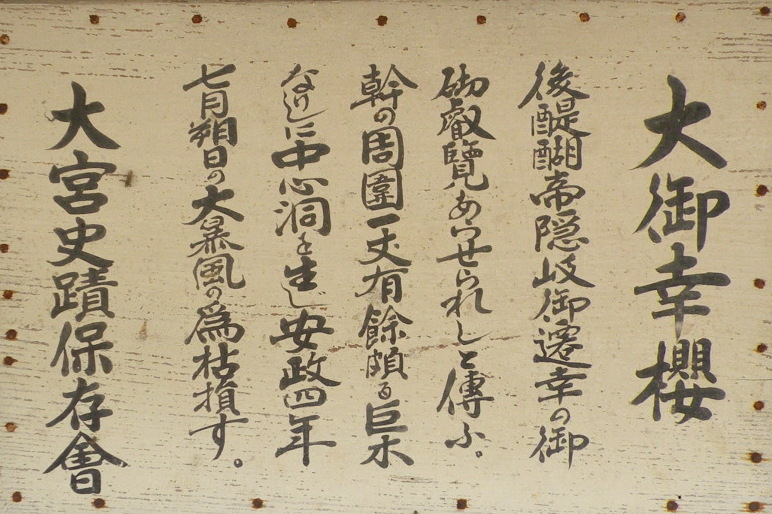 大御幸櫻
後醍醐帝隠岐御遷幸の御
砌叡覽あらせられしと傳ふ。
幹の周圍一丈有餘頗る巨木
なりしに中心洞を生し安政四年
七月朔日の大暴風の爲枯損す。
大宮史蹟保存會